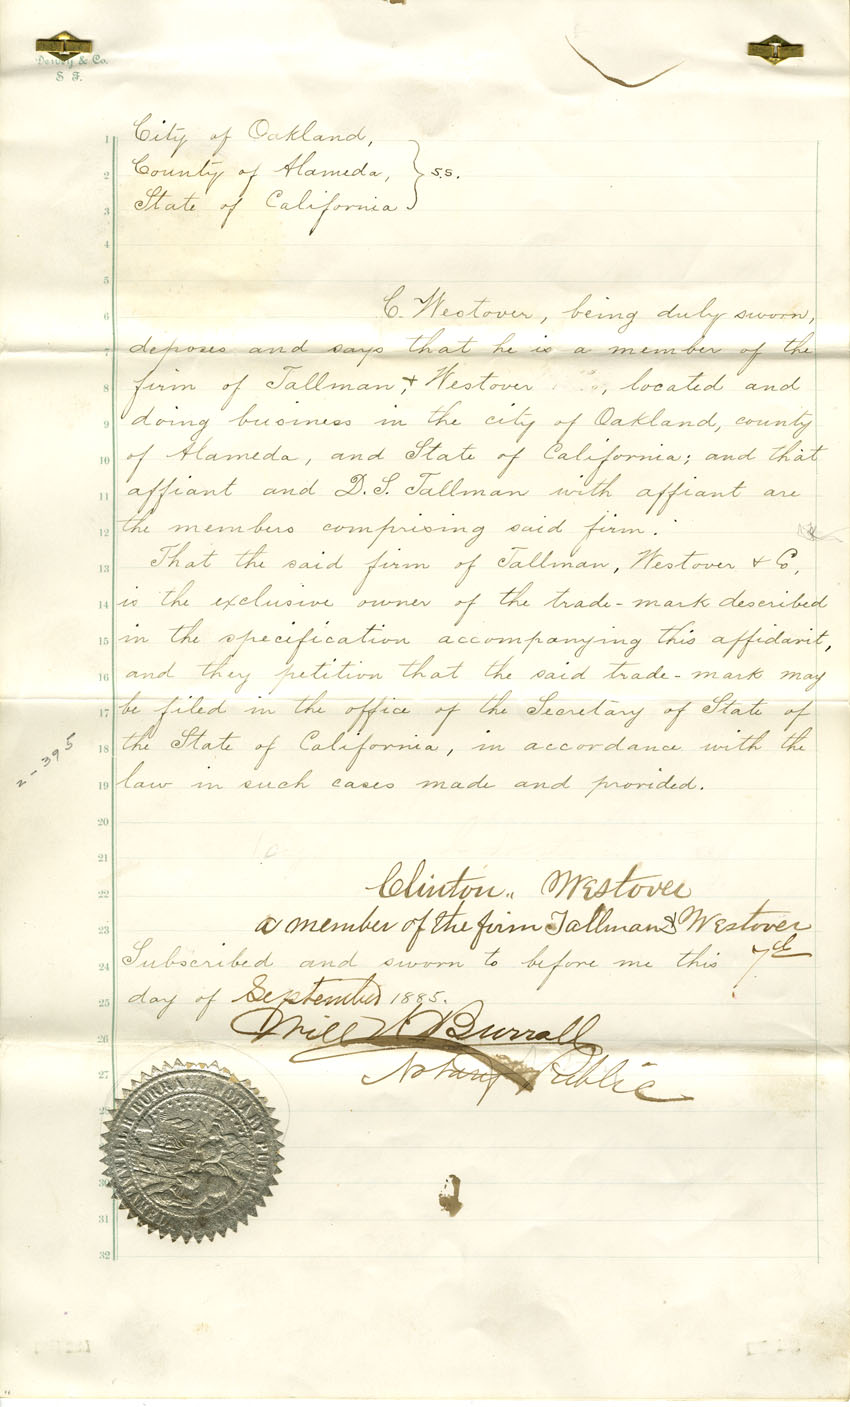 Dewey & Co.
S. F.
1 City of Oakland,
2 County of Alameda, } s.s.
3 State of California
4
5
6 C. Westover, being duly sworn,
7 deposes and says that he is a member of the
8 firm of Tallman, & Westover, located and
9 doing business in the city of Oakland, county
10 of Alameda, and State of California; and that
11 affiant and D. S. Tallman with affiant are
12 the members comprising said firm.
13 That the said firm of Tallman, Westover & Co,
14 is the exclusive owner of the trade-mark described
15 in the specification accompanying this affidavit,
16 and they petition that the said trade-mark may
17 be filed in the office of the Secretary of State of
18 the State of California, in accordance with the
19 law in such cases made and provided.
2-395
20
21
22 Clinton Westover
23 a member of the firm Tallman & Westover
24 Subscribed and sworn to before me this 7th
25 day of September 1885.
26 Burrall
27 Notary Public
28
30
31
32